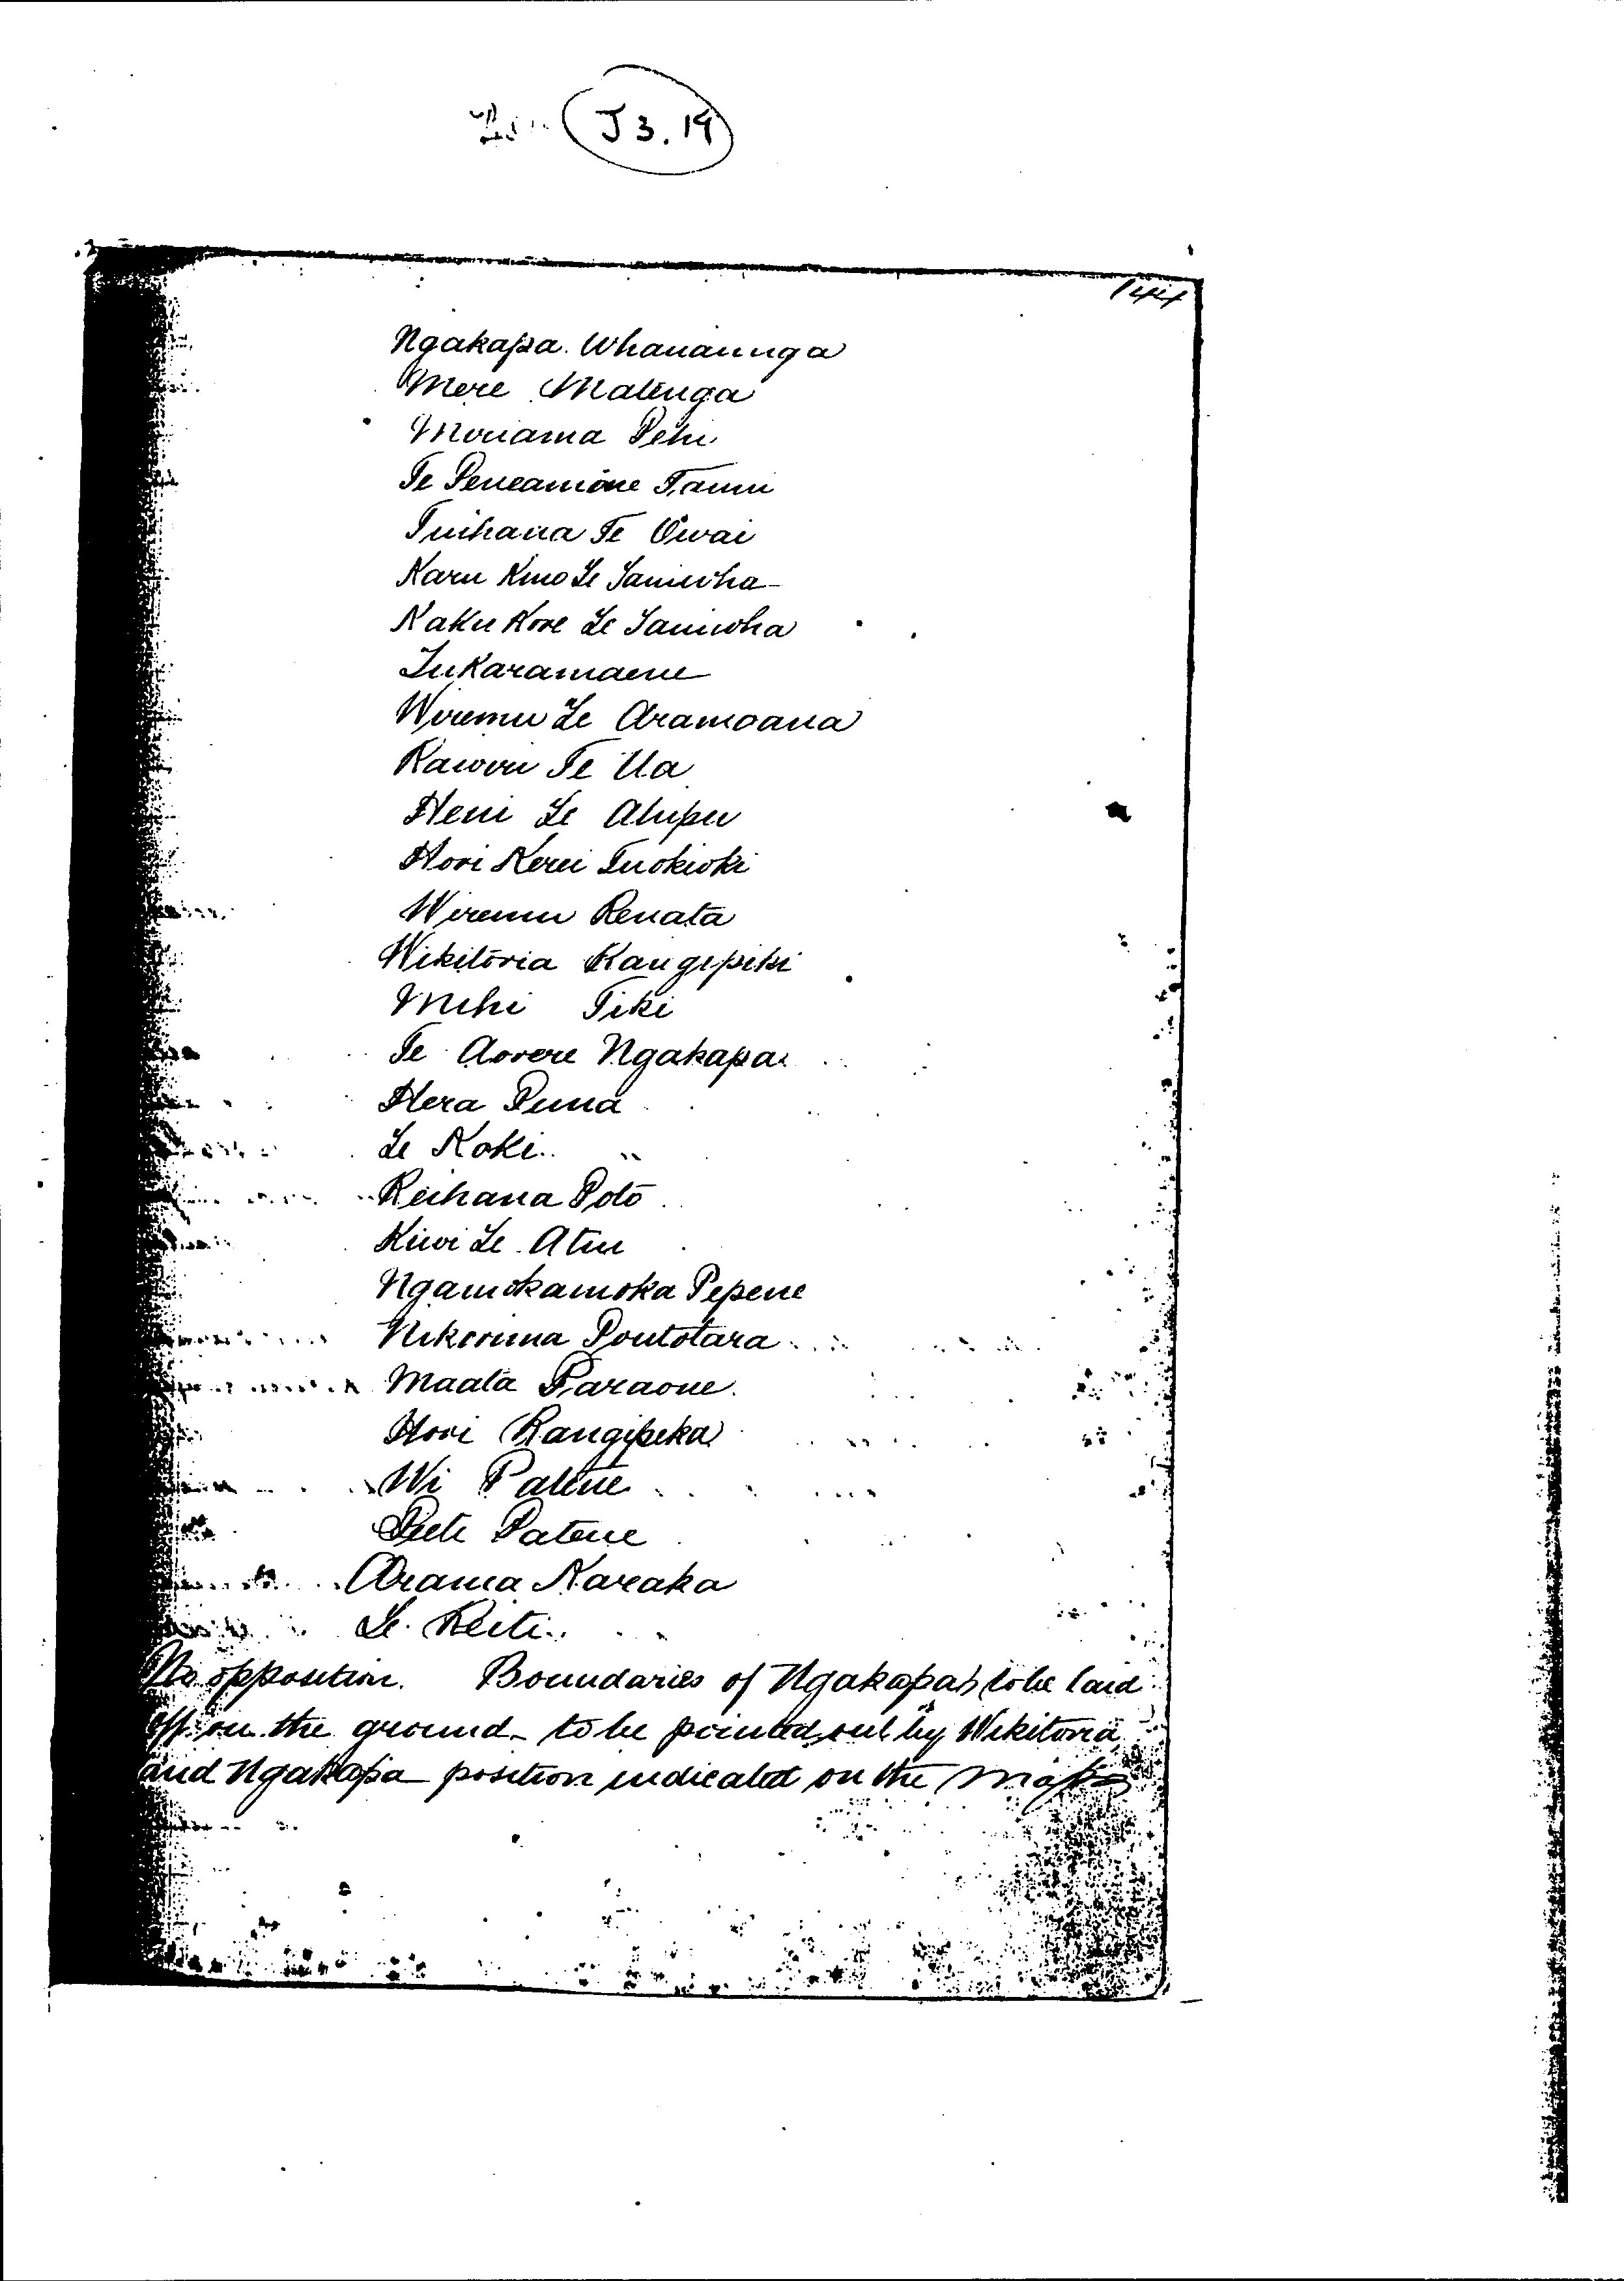 J 3.19
144
Ngakapa Whanaunga
Mere Matenga
Moriama Pehi
Te Peneamine Tamu
Tuihana Te Owai
Karu Kino Te Taniwha
Naku Kore Te Taniwha
Tukaramaene
Wiremu Te Aramoana
Rawiri Te Ua
Heni Te Atupu
Hori Kerei Tuokioki
Wiremu Renata
Wikitoria Rangipiki
Mihi Tiki
Te Aorere Ngakapa
Hera Puna
Te Koki
Reihana Poto
Kiwi Te Atu
Ngamokamoka Pepene
Nikorima Poutotara
Maata Paraone
Hori Rangipeka
Wi Patene
Pete Patene
Arama Karaka
Te Reiti
No opposition. Boundaries of Ngakapa's to be laid
off on the ground - to be pointed out by Wikitoria
and Ngakapa position indicated on the map